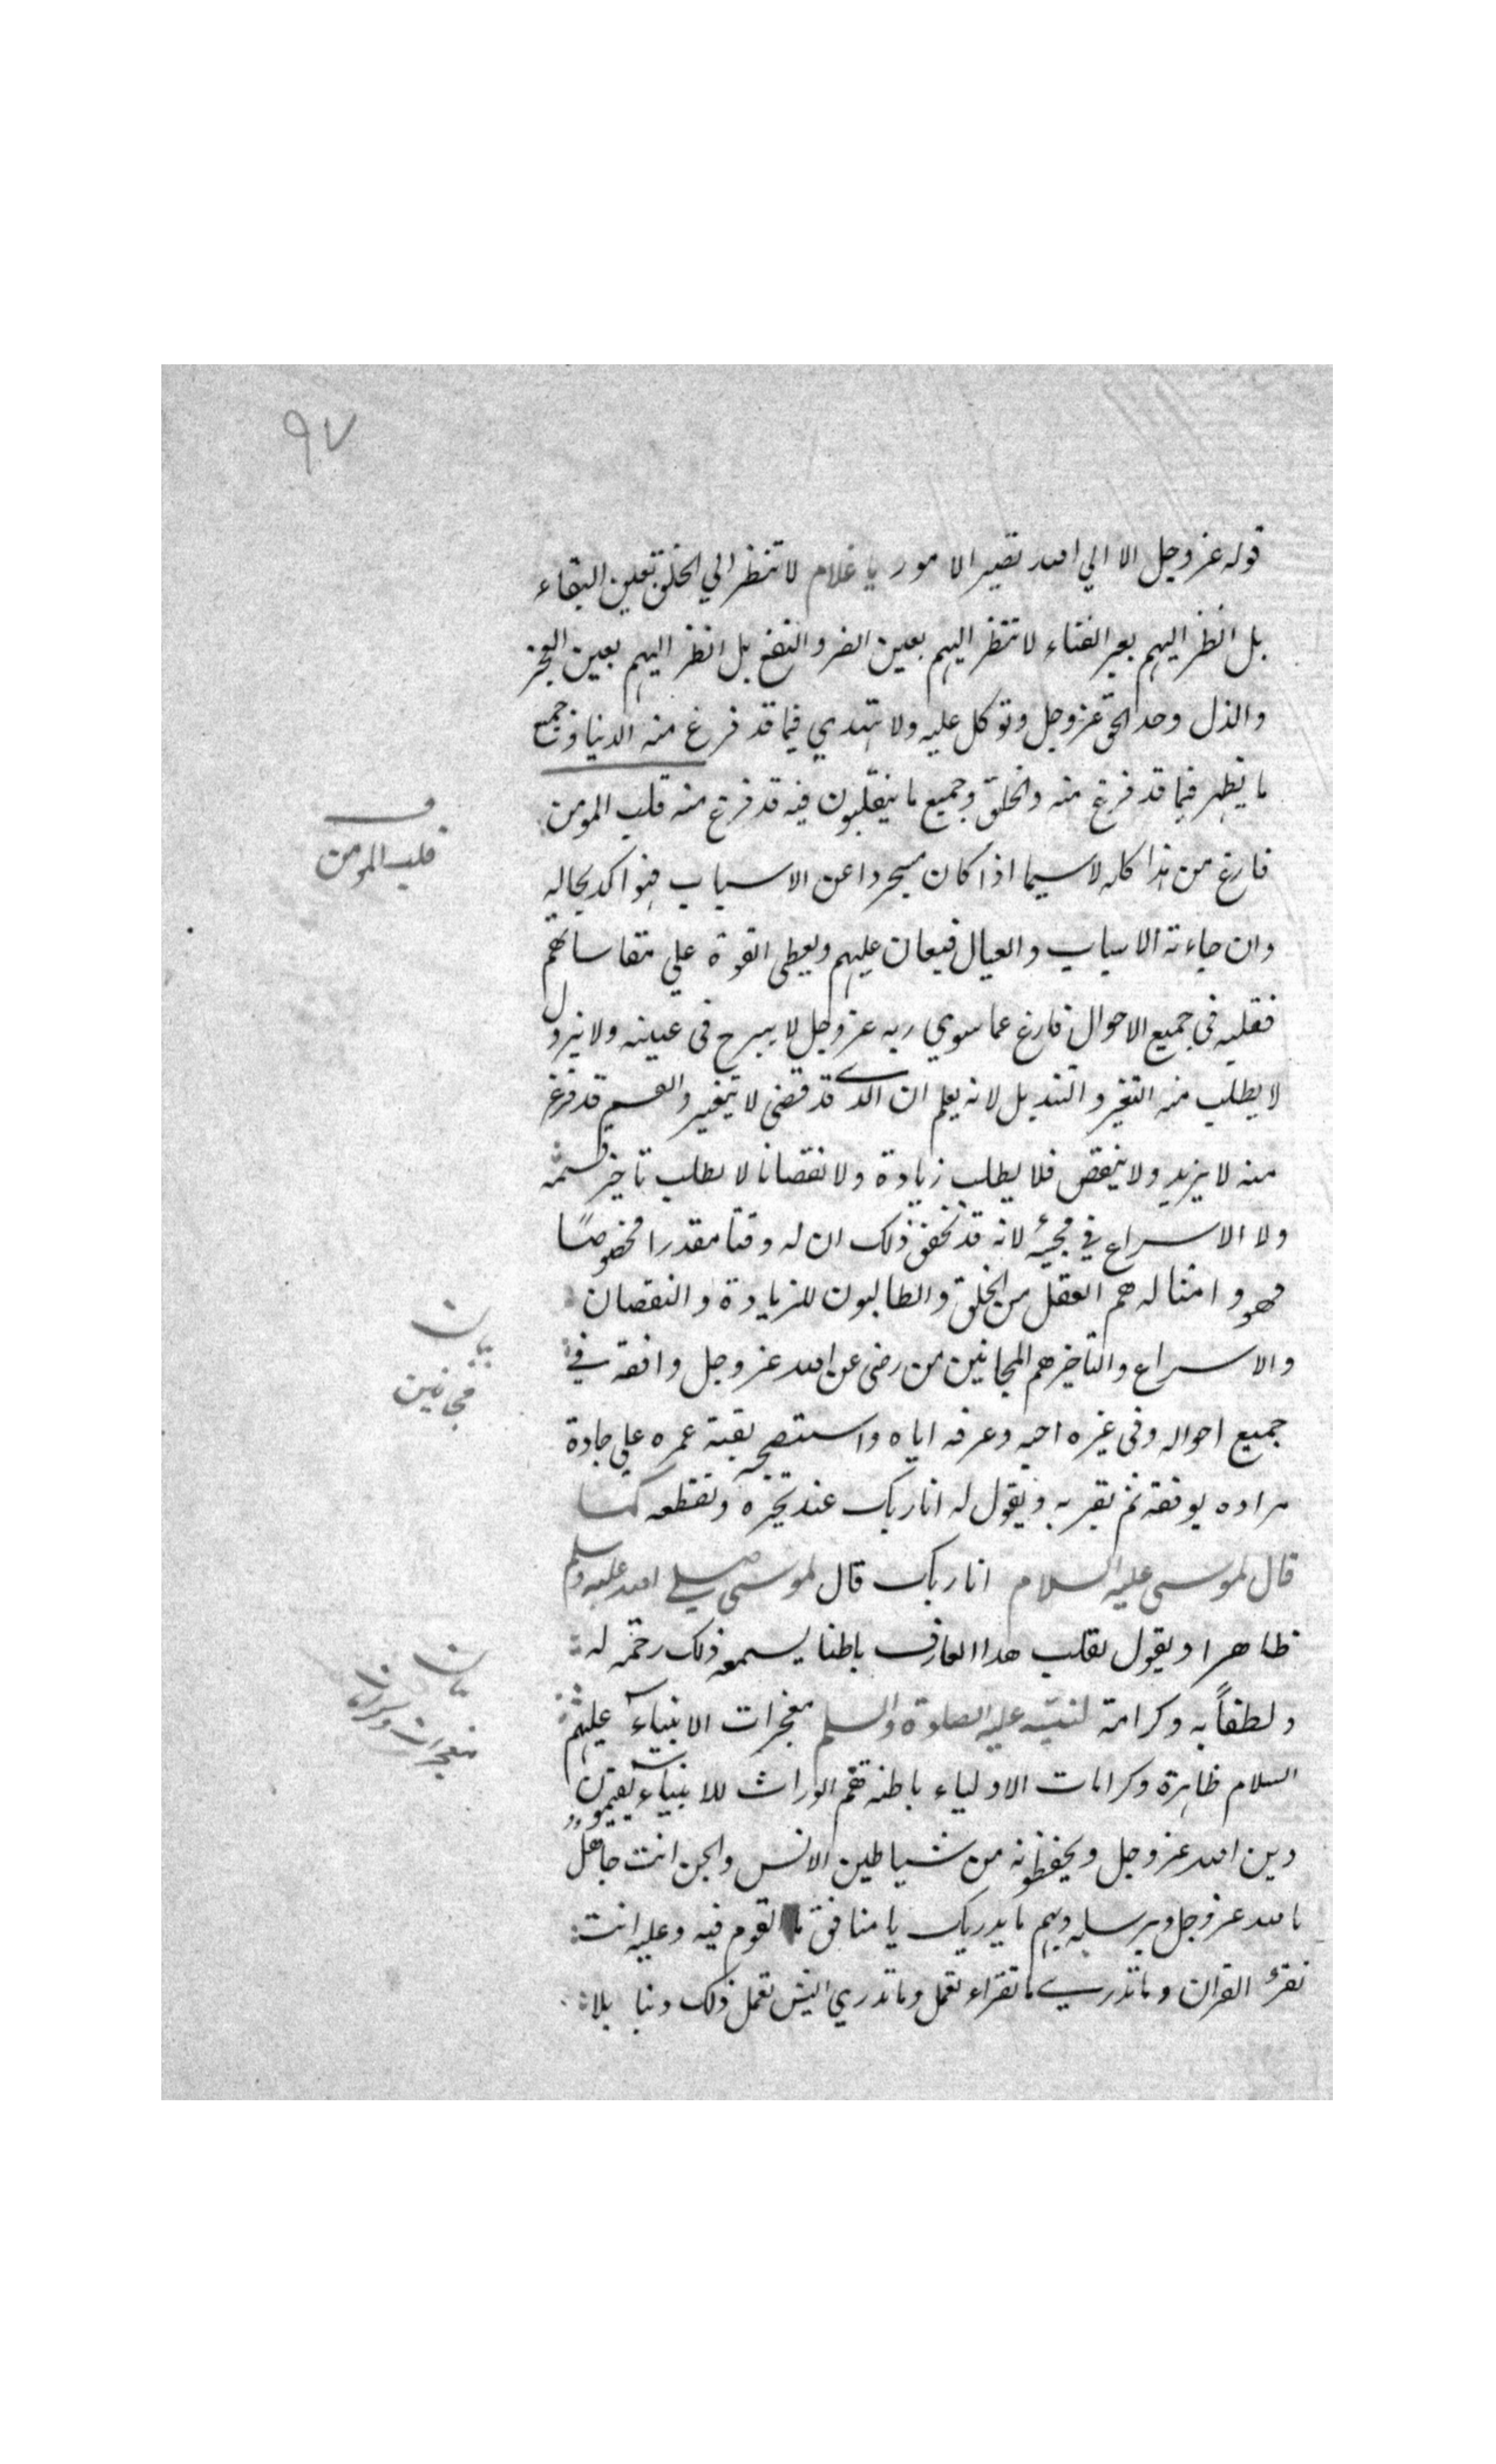 ٩٧
قوله عز وجل الا الي الله تصير الامور يا غلام لا تنظر الي الخلق بعين البقاء
بل انظر اليهم بعين الفناء لا تنظر اليهم بعين الضر والنفع بل انظر اليهم بعين العجز
والذل وحد الحق عز وجل وتوكل عليه ولا تهدي فيما قد فرغ منه الدنيا وجميع
ما يظهر فيما قد فرغ منه والخلق وجميع ما ينقلبون فيه قد فرغ منه قلب المومن
ف
قلب المومن
فارغ من هذا كله لاسيما اذا كان مجردا عن الاسباب فهو اكد بحاله
وان جاءته الاسباب والعيال فيعان عليهم ويعطى القوة علي مقاساتهم
فقلبه في جميع الاحوال فارغ عما سوي ربه عز وجل لا يبرح في عينه ولا يزول
لا يطلب منه التغير والتبديل لانه يعلم ان الذي قد قضى لا يتغير والقسم قد فرغ
منه لا يزيد ولا ينقص فلا يطلب زيادة ولا نقصانا لا يطلب تاخير قسمه
ولا الاسراع في مجيئه لانه قد تحقق ذلك ان له وقتا مقدرا مخصوصًا
فهو وامثاله هم العقل من الخلق والطالبون للزيادة والنقصان
والاسراع والتاخير هم المجانين من رضى عن الله عز وجل وافقه في
بيان
مجانين
جميع احواله وفي غيره احبه وعرفه اياه واستصحبه بقية عمره علي جادة
مراده يوفقه ثم يقربه ويقول له انا ربك عند تحيره وتقطعه كما
قال لموسى عليه السلام انا ربك قال لموسى صلي الله عليه وسلم
ظاهرا ويقول لقلب هذا العارف باطنا يسمعه ذلك رحمة له
ولطفاً به وكرامة لنبيه عليه الصلوة والسلم معجزات الانبياء عليهم
بيان
معجزات وكرامات
السلام ظاهرة وكرامات الاولياء باطنة هم الوراث للانبياء يقيمون
دين الله عز وجل ويحفظونه من شياطين الانس والجن انت جاهل
بالله عز وجل وبرسله وبهم ما يدريك يا منافق ما القوم فيه وعليه انت
تقرء القران وما تدري ما تقراء تعمل وما تدري ايش تعمل ذلك دنيا بلا